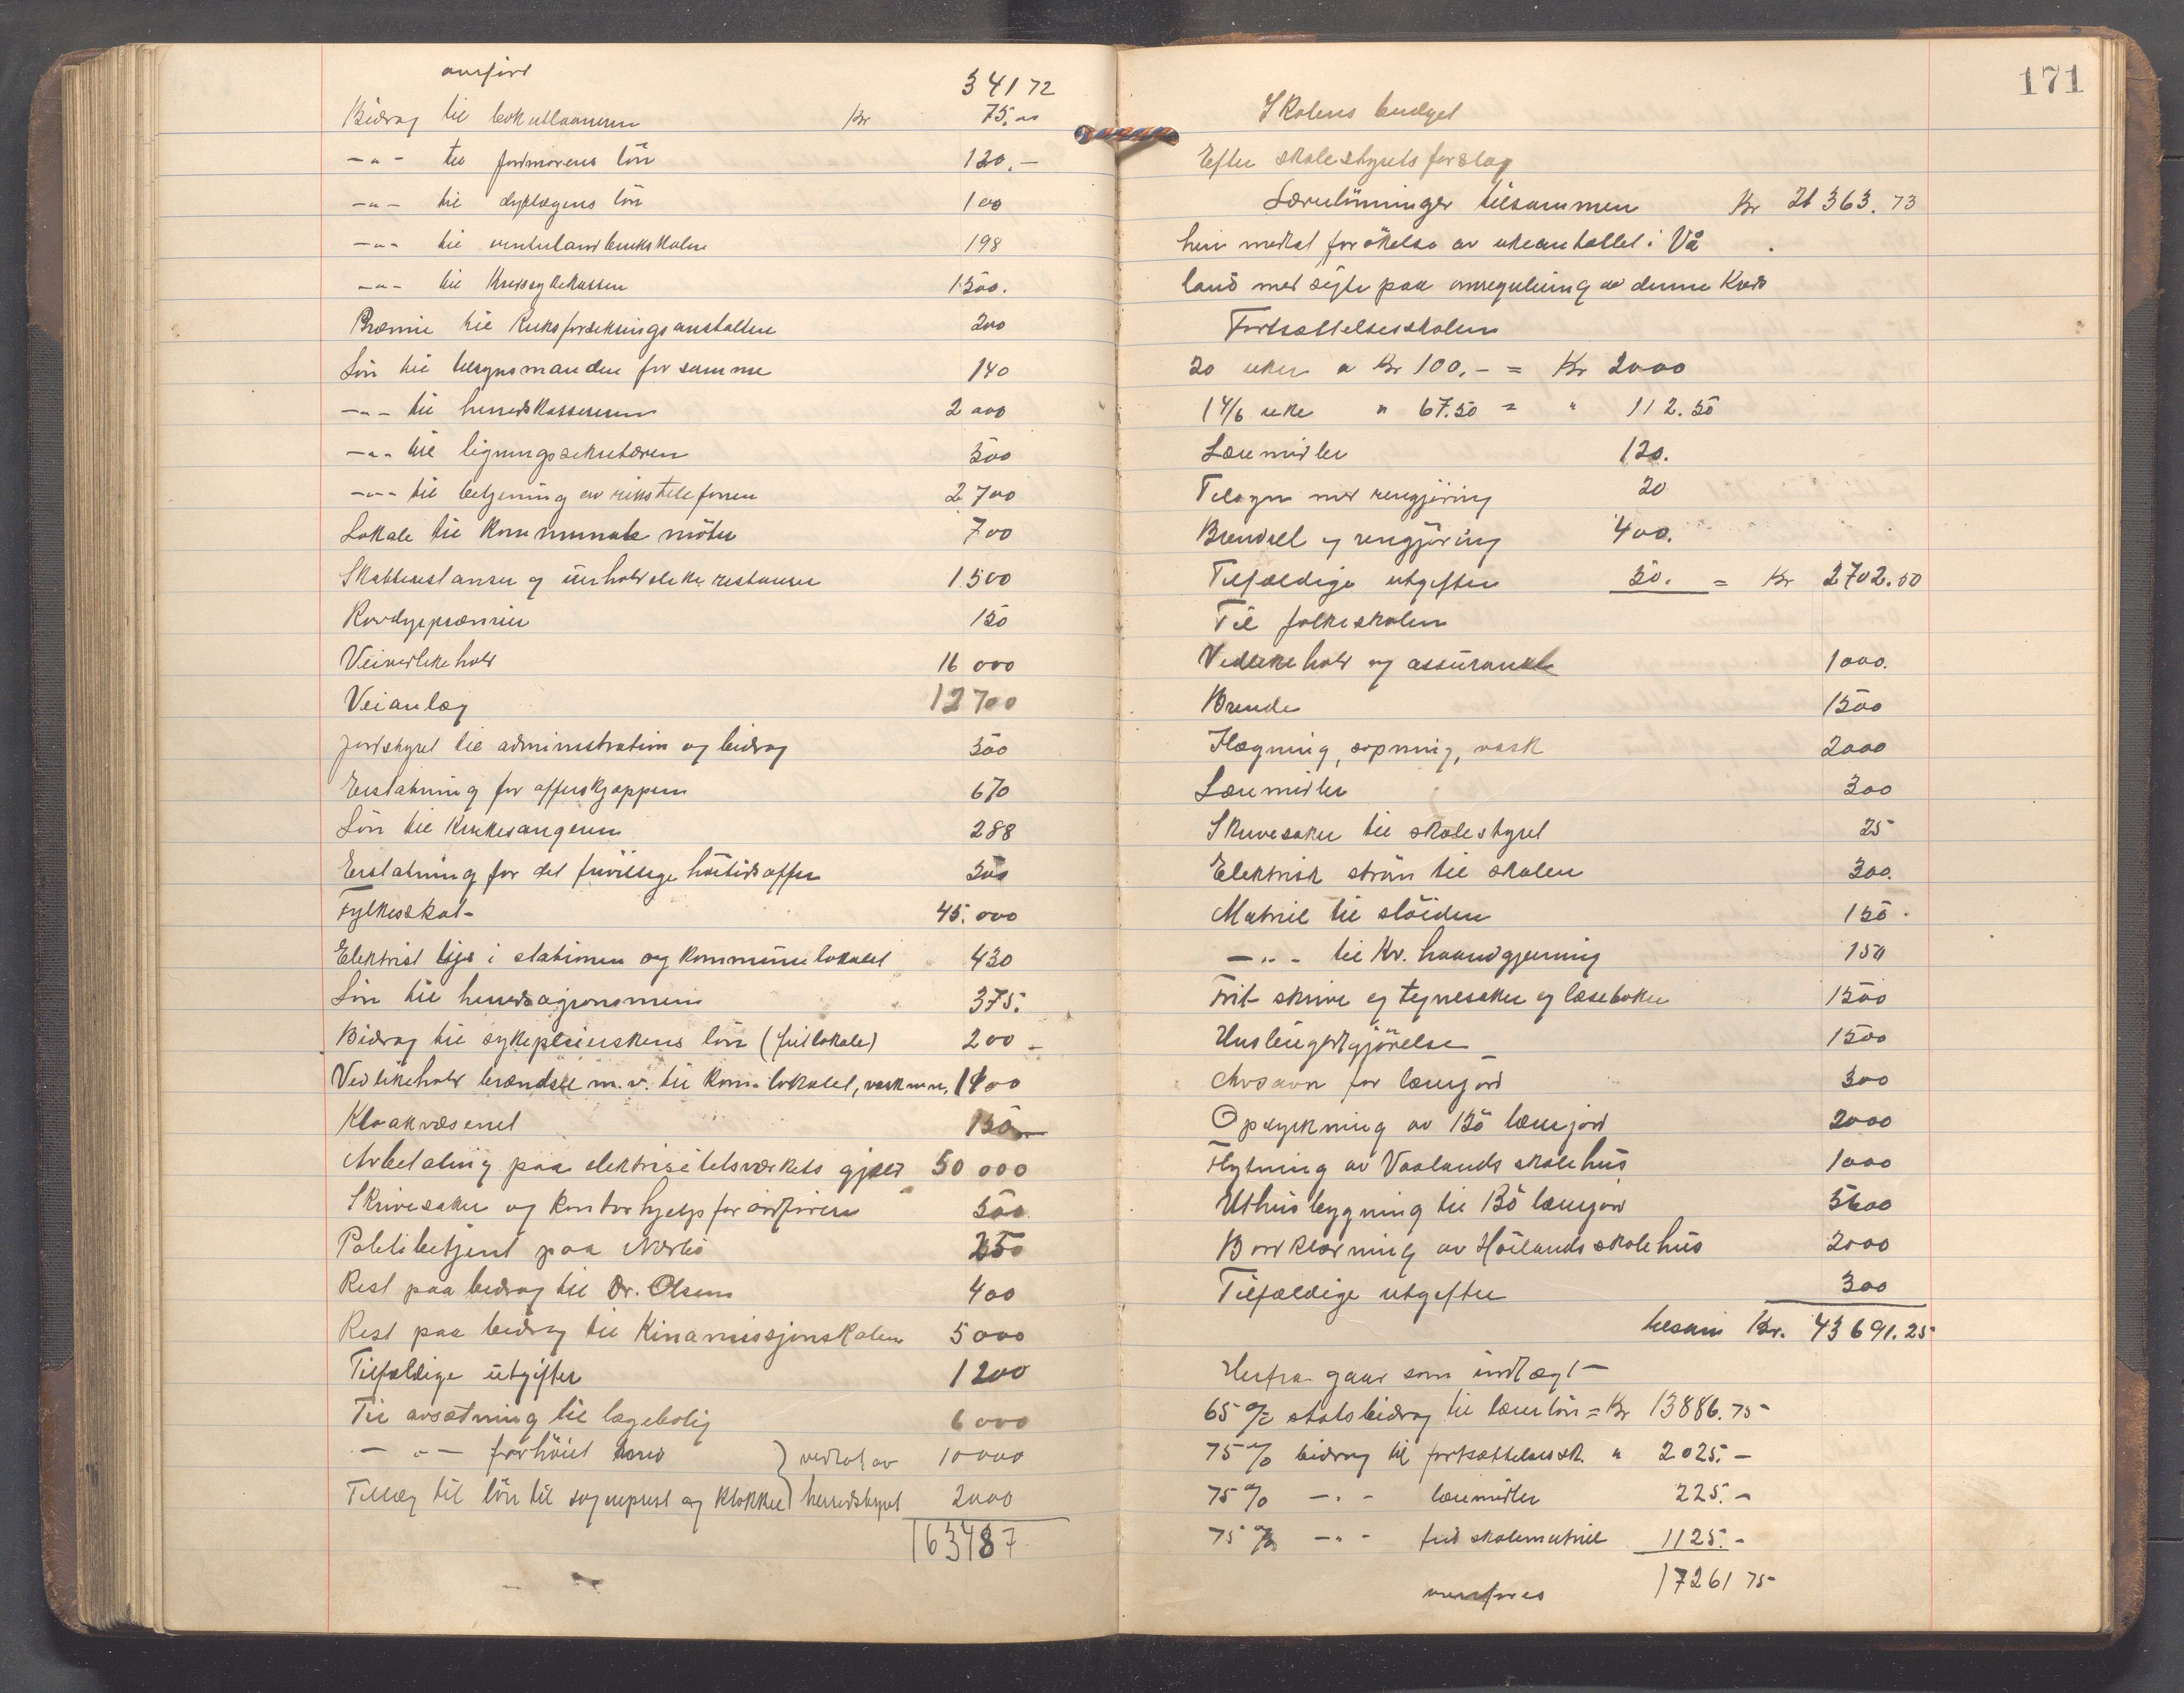 overført 341 72
Bidrag til bokutlaaneren Kr 75.00
-"- til jordmorens lön 120.-
-"- til dyrlægens lön 100
-"- til vinterlandbruksskolen 198
-"- til Kredssykekassen 1500.
Præmie til Riksforsikringsanstalten 200
Lön til tilsynsmanden for samme 140
-"- til herredskassereren 2000
-"- til ligningssekretæren 500
-"- til betjening av rikstelefonen 2700
Lokale til kommunale möter 700
Skatterestanser og uerholdelike restanser 1500
Rovdyrpræmier 150
Veivedlikehold 16 000
Veianlæg 12700
Jordstyret til administration og bidrag 500
Erstatning for offerskjæppen 670
Lön til Kirkesangeren 288
Erstatning for det frivillige höitidsoffer 300
Fylkesskat 45.000
Elektrisk lys i stationen og kommunelokalet 430
Lön til herredsagronomen 375.
Bidrag til sykepleierskens lön (frit lokale) 200 -
Vedlikehold brændsel m.v. til kom. lokalet, vask m.m. 1400
Kloakvæsenet 150
Avbetaling paa elektrisitetsværkets gjæld 50 000
Skrivesaker og kontorhjelp for ordföreren 500
Politibetjent paa Nærbö 250
Rest paa bidrag til Dr. Olsen 400
Rest paa bidrag til Kinamissjonsskolen 5000
Tilfældige utgifter 1200
Til avsætning til lægebolig 6000
- " - forhöiet } vedtat av 10000
Tillæg til lön til sogneprest og klokker } herredsstyret 2000
163487
171
Skolens budget
Efter skolestyrets forslag
Lærerlönninger tilsammen Kr 21 363.73
heri medtat forökelse av ukeantallet i Vå
land med sigte paa omregulering av denne Kreds
Fortsættelsesskolen
20 uker a Kr 100.- = Kr 2000
1 4/6 uke " 67.50 = " 112.50
Læremidler 120.
Tilsyn med rengjöring 20
Brendsel og rengjöring 400.
Tilfældige utgifter 50. = Kr 2702.50
Til folkeskolen
Vedlikehold og assurance 1000.
Brende 1500
Ilægning, sopning, vask 2000
Læremidler 300
Skrivesaker til skolestyret 25
Elektrisk ström til skolen 300.
Matriel til slöiden 150.
-"- til Kv. haandgjerning 150
Frit skrive og tegnesaker og læseböker 1500
Husleiegodtgjörelse 1500
Avsavn for lærerjord 300
Opdyrkning av Bö lærerjord 2000
Flytning av Vaalands skolehus 1000
Uthusbygning til Bö lærerjord 5600
Bordklædning av Höilands skolehus 2000
Tilfældige utgifter 300
tilsam Kr. 43 691.25
Herfra gaar som indtægt
65 % statsbidrag til lærerlön = Kr 13886.75
75 % bidrag til fortsættelsessk. " 2025.-
75 % -"- læremidler 225.-
75 % -"- frit skolematriel 1125.-
overföres 17261 75